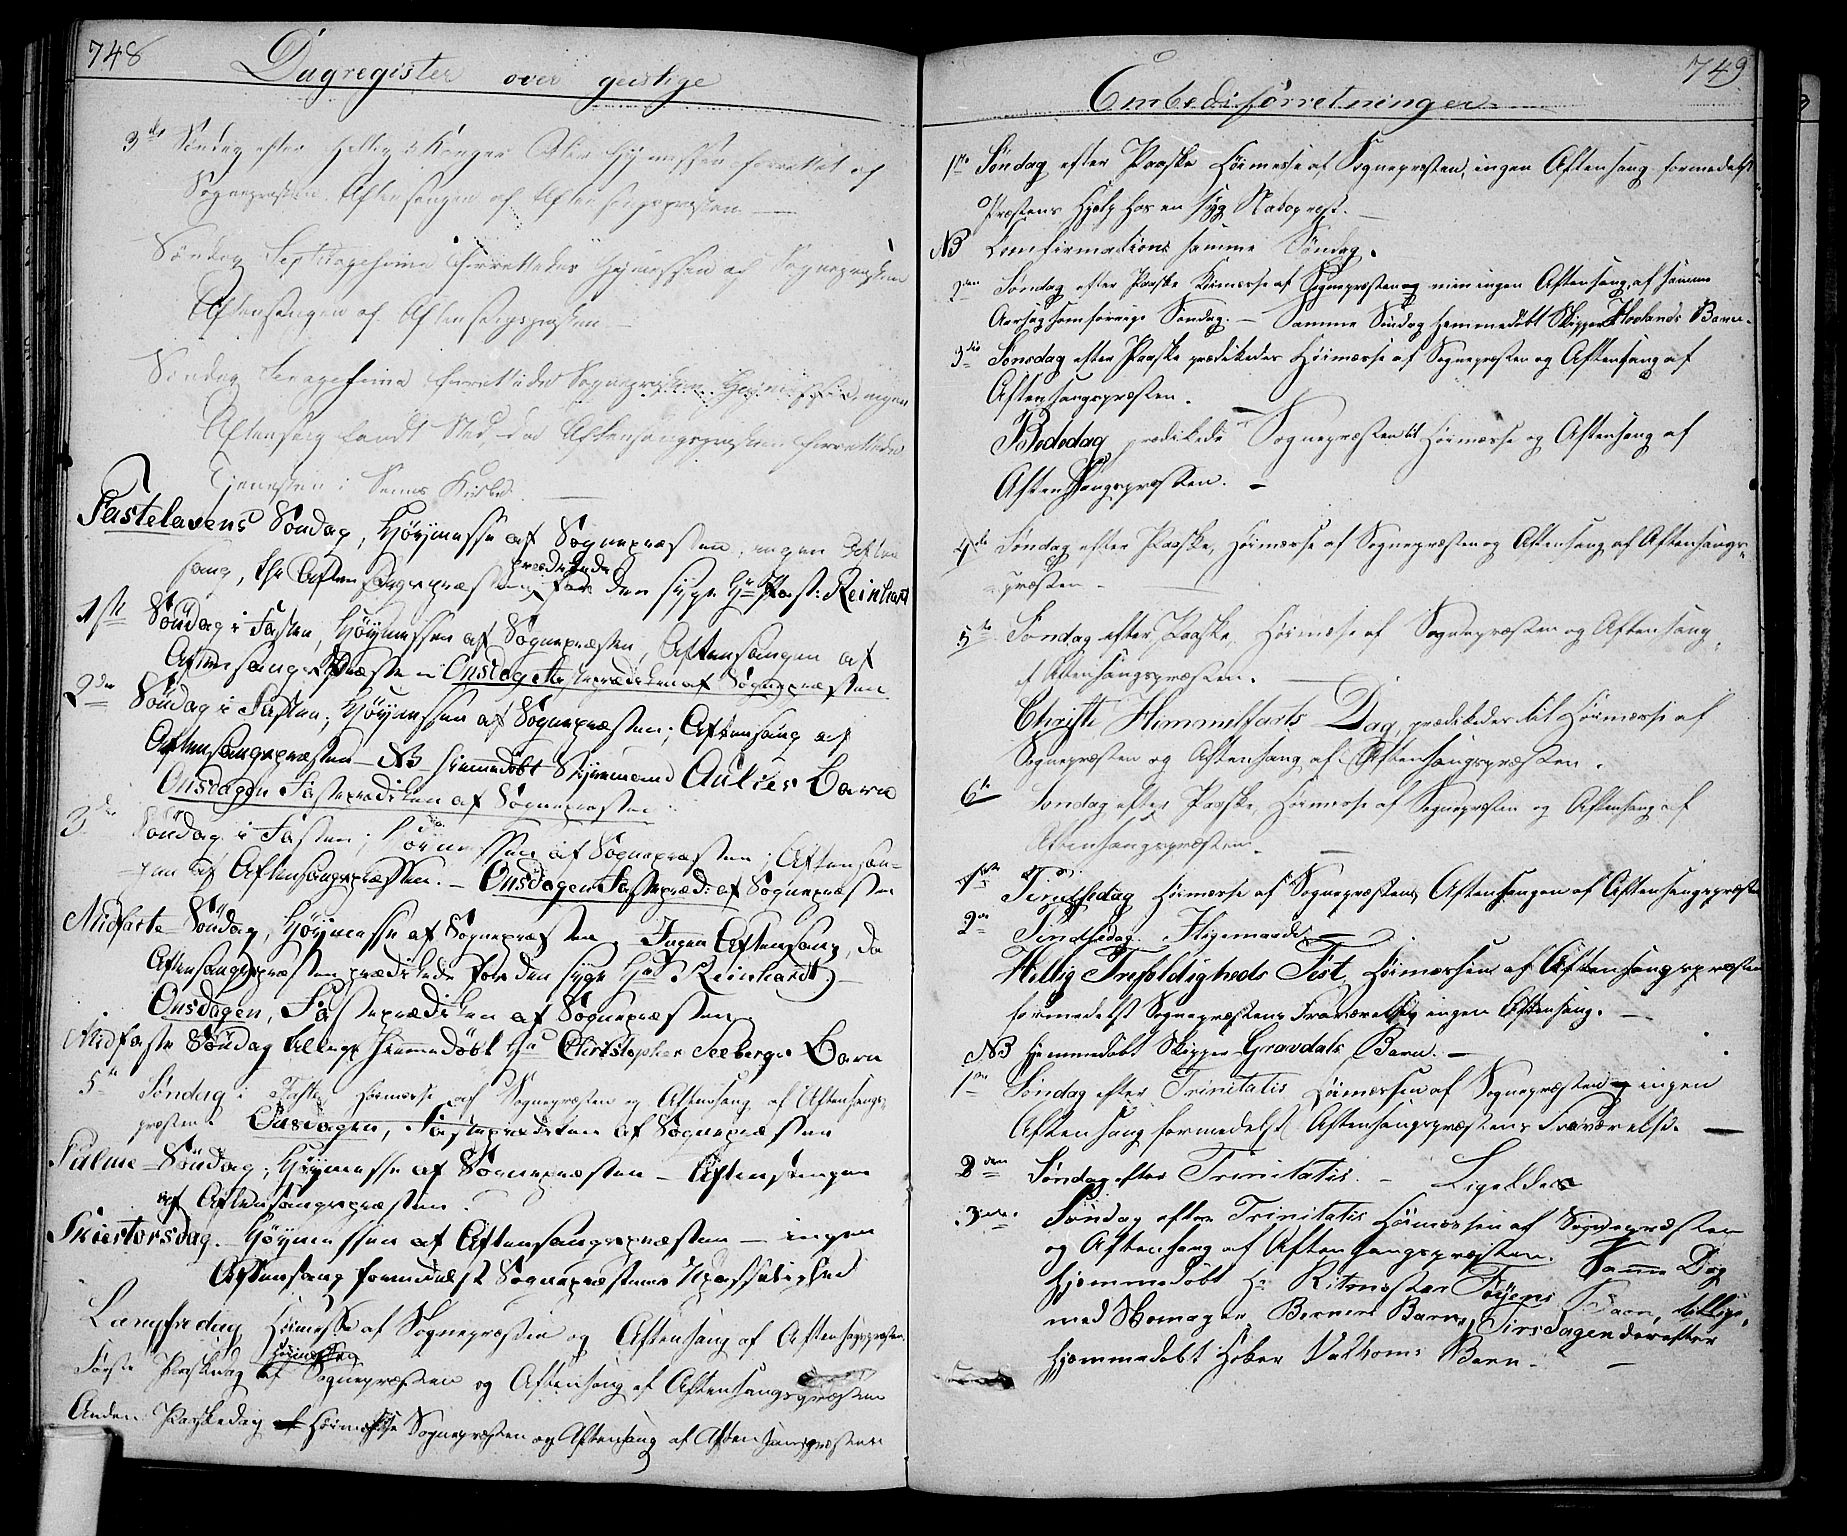 748
Dagregister over geistlige
3de Søndag efter Hellig 3 Konger Høymessen forrettet af
Sognepræsten, Aftensangen af Aftensangspræsten
Søndag Septuagesima forrettedes Høymessen af Sognepræsten
Aftensangen af Aftensangspræsten
Søndag Sexagesima forrettedes Sognepræsten Høymessen, ingen
Aftensang fandt Sted da Aftensangspræsten forrettede
Tjenesten i Kirke.
Fastelavens Søndag, Høymesse af Sognepræsten, ingen Aften
sang, thi Aftensangspræsten prædikede for den syge Hr Past: Reinhart
1ste Søndag i Fasten, Høymessen af Sognepræsten, Aftensangen af
Aftensangspræsten Onsdag Fasteprædiken af Sognepræsten
2den Søndag i Fasten, Høymessen af Sognepræsten; Aftensang af
Aftensangspræsten – NB hiemmedøbt Barn
Onsdagen Fasteprædiken af Sognepræsten
3de Søndag i Fasten; Høymessen af Sognepræsten; Aftensan-
gen af Aftensangspræsten. – Onsdagen Fastepræd: af Sognepræsten
Midfaste Søndag, Høymesse af Sognepræsten, Ingen Aftensang, da
Aftensangspræsten prædikede for den syge Hr P. Reinhardt –
Onsdagen, Fasteprædiken af Sognepræsten
Midfaste Søndag tillige hiemmedøbt Hr Christopher Seebergs Barn
5te Søndag i Faste Høimesse af Sognepræsten og Aftensang af Aftensangs-
præsten. Onsdagen, Fasteprædiken af Sognepræsten
Palme-Søndag; Høymesse af Sognepræsten – Aftensangen
af Aftensangspræsten.
Skiertorsdag. Høymessen af Aftensangspræsten – ingen
Aftensang formedelst Sognepræstens Upasselighed
Langfredag Høimesse af Sognepræsten og Aftensang af Aftensangspræsten.
Første Paaskedag Høimessen af Sognepræsten og Aftensang af Aftensangspræsten
Anden Paaskedag Høimesse Sognepræsten og Aftensang af Aftensangspræsten
749
Embedsforretninger
1ste Søndag efter Paaske Høimesse af Sognepræsten, ingen Aftensang formedelst
Præstens Hjelp hos en syg Nabopræst.
NB Confirmations samme Søndag.
2den Søndag efter Paaske Høimesse af Sognepræsten men ingen Aftensang, af samme
Aarsag som forrige Søndag. – Samme Søndag hjemmedøbt Skipper Hovlands Barn.
3die Sønsdag efter Paaske prædikedes Høimesse af Sognepræsten og Aftensang af
Aftensangspræsten.
Bededag prædikede Sognepræsten til Høimesse og Aftensang af
Aftensangspræsten. –
4de Søndag efter Paaske, Høimesse af Sognepræsten og Aftensang af Aftensangs-
præsten –
5te Søndag efter Paaske, Høimesse af Sognepræsten og Aftensang
af Aftensangspræsten.
Christi Himmelfarts Dag, prædikedes til Høimesse af
Sognepræsten og Aftensang af Aftensangspræsten.
6te Søndag efter Paaske, Høimesse af Sognepræsten og Aftensang af
Aftensangspræsten.
1ste Pindsedag Høimesse af Sognepræsten, Aftensangen af Aftensangspræsten
2den Pindsedag. Ligemaade. –
Hellig Trefoldigheds Fest, Høimessen af Aftensangspræsten
formedelst Sognepræstens Fraværelse, ingen Aftensang. –
NB hjemmedøbt Skipper Gravdals Barn. –
1ste Søndag efter Trinitatis Høimessen af Sognepræsten ingen
Aftensang formedelst Aftensangspræstens Fraværelse. –
2den Søndag efter Trinitatis. – Ligeledes
3die Søndag efter Trinitatis Høimessen af Sognepræsten
og Aftensang af Aftensangspræsten. Samme Dag
hjemmedøbt Hr Ritmester Føyens Barn, tillige-
med Skomager Berners Barn, Tirsdagen derefter
hjemmedøbt Høker Valhoms Barn. –